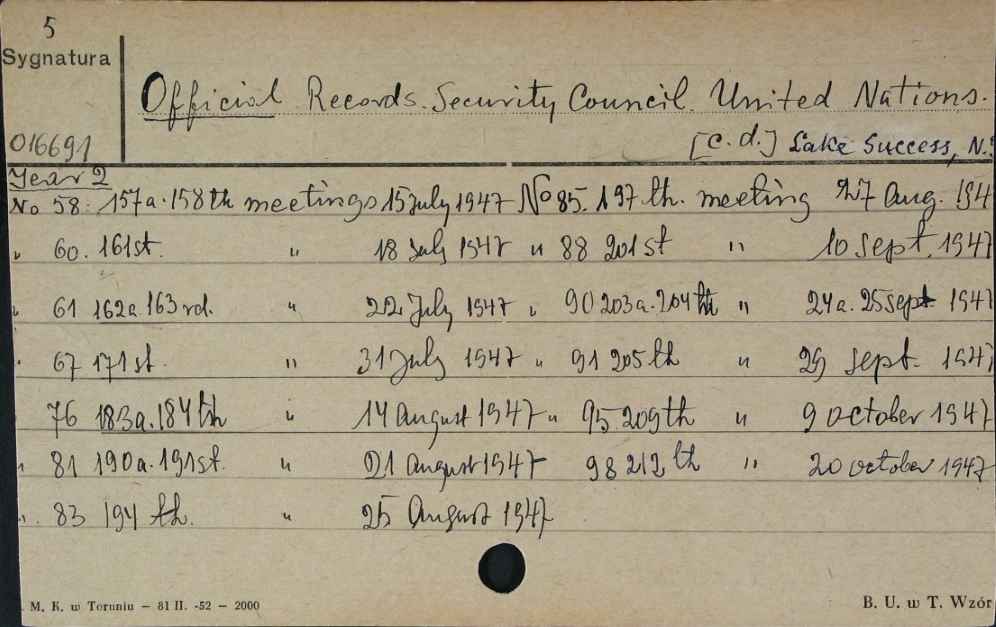 5
Sygnatura
Official Records. Security Council. United Nations.
016691
[c.d.] Lake Success, N.
Year 2
No 58. 157 a. 158th meetings 15 July 1947 No 85. 197 th. meeting 27 Aug. 194
" 60. 161st. " 18 July 1947 " 88 201st " 10 Sept. 1947
" 61 162 a. 163 rd. " 22 July 1947 " 90 203 a. 204 th " 24 a. 25 Sept 1947
" 67 171 st. " 31 July 1947 " 91 205 th " 29 Sept. 1947
76 183 a. 184 th " 14 August 1947 " 95 209 th " 9 October 1947
" 81 190 a. 191st. " 21 August 1947 98 212 th " 20 October 1947
" 83 194 th. " 25 August 1947
M. K. w Toruniu — 81 II. -52 — 2000
B. U. w T. Wzór